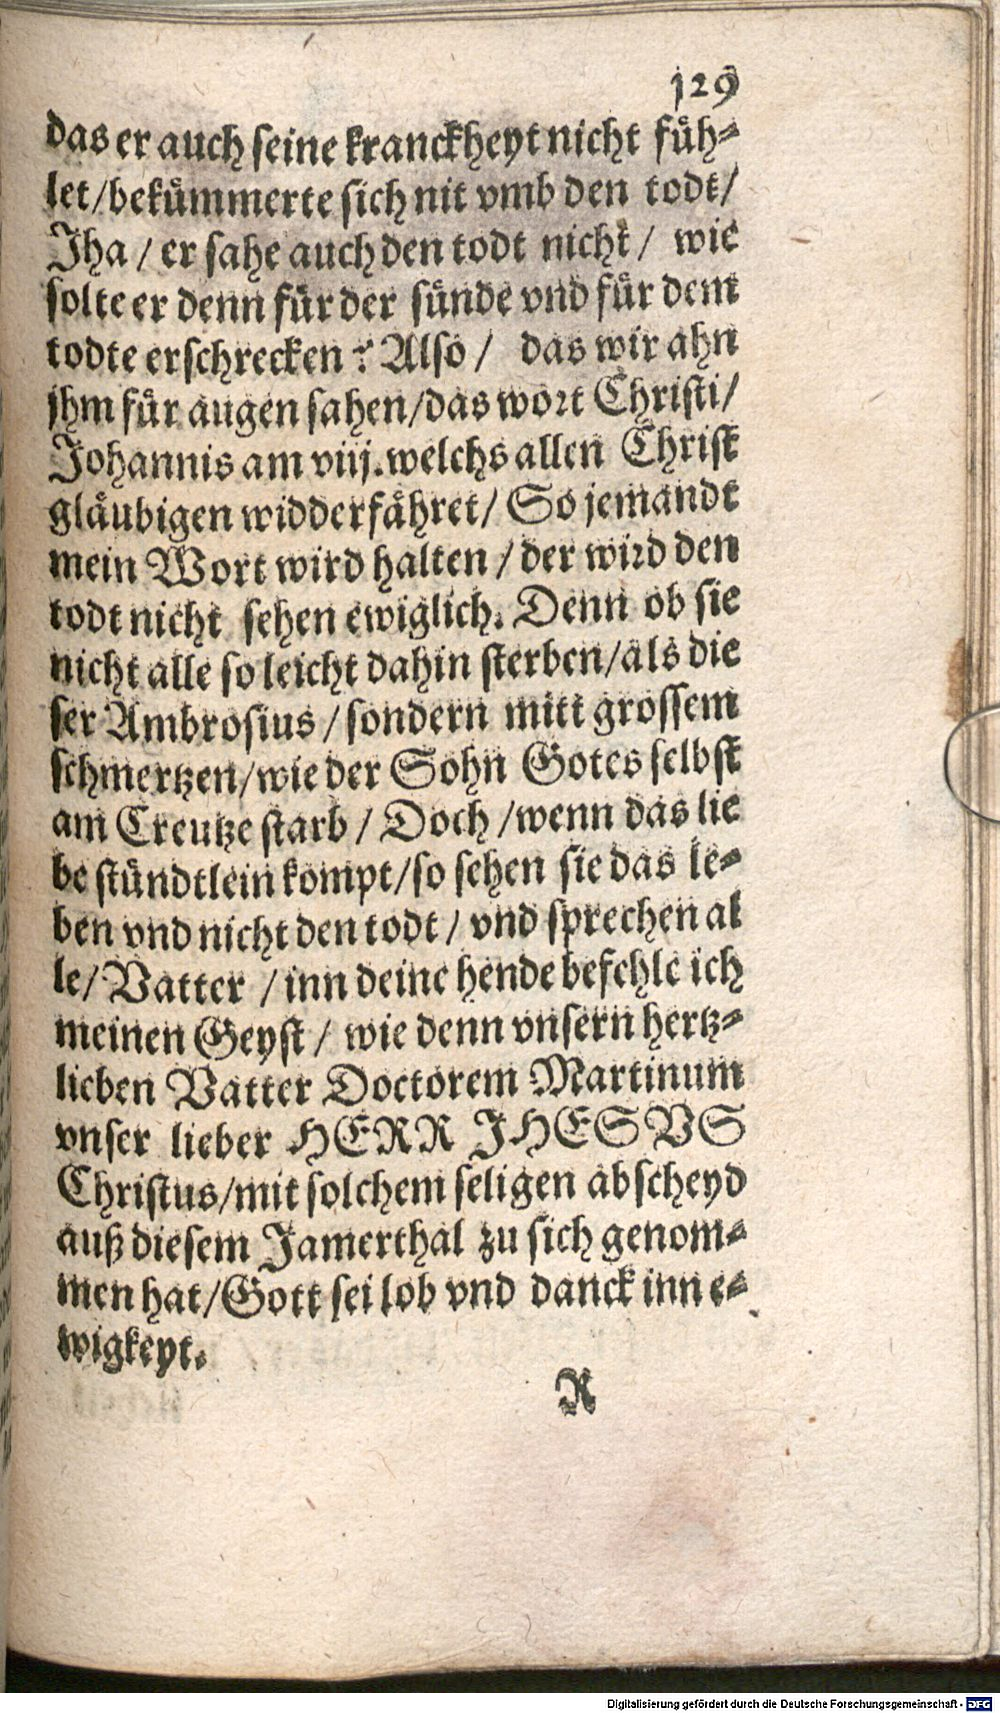 129
das er auch seine kranckheyt nicht füh-
let/bekümmerte sich nit vmb den todt/
Jha/ er sahe auch den todt nicht/ wie
solte er denn für der sünde vnd für dem
todte erschrecken? Also/ das wir ahn
jhm für augen sahen/das wort Christi/
Johannis am viij. welchs allen Christ
gläubigen widderfähret/ So jemandt
mein Wort wird halten/der wird den
todt nicht sehen ewiglich. Denn ob sie
nicht alle so leicht dahin sterben/als die
ser Ambrosius/sondern mitt grossem
schmertzen/wie der Sohn Gotes selbst
am Creutze starb/ Doch/wenn das lie
be stündtlein kompt/so sehen sie das le-
ben vnd nicht den todt/ vnd sprechen al
le/Vatter/inn deine hende befehle ich
meinen Geyst/ wie denn vnsern hertz-
lieben Vatter Doctorem Martinum
vnser lieber HERR JHESVS
Christus/mit solchem seligen abscheyd
auß diesem Jamerthal zu sich genom-
men hat/Gott sei lob vnd danck inn e-
wigkeyt.
R
Digitalisierung gefördert durch die Deutsche Forschungsgemeinschaft - DFG